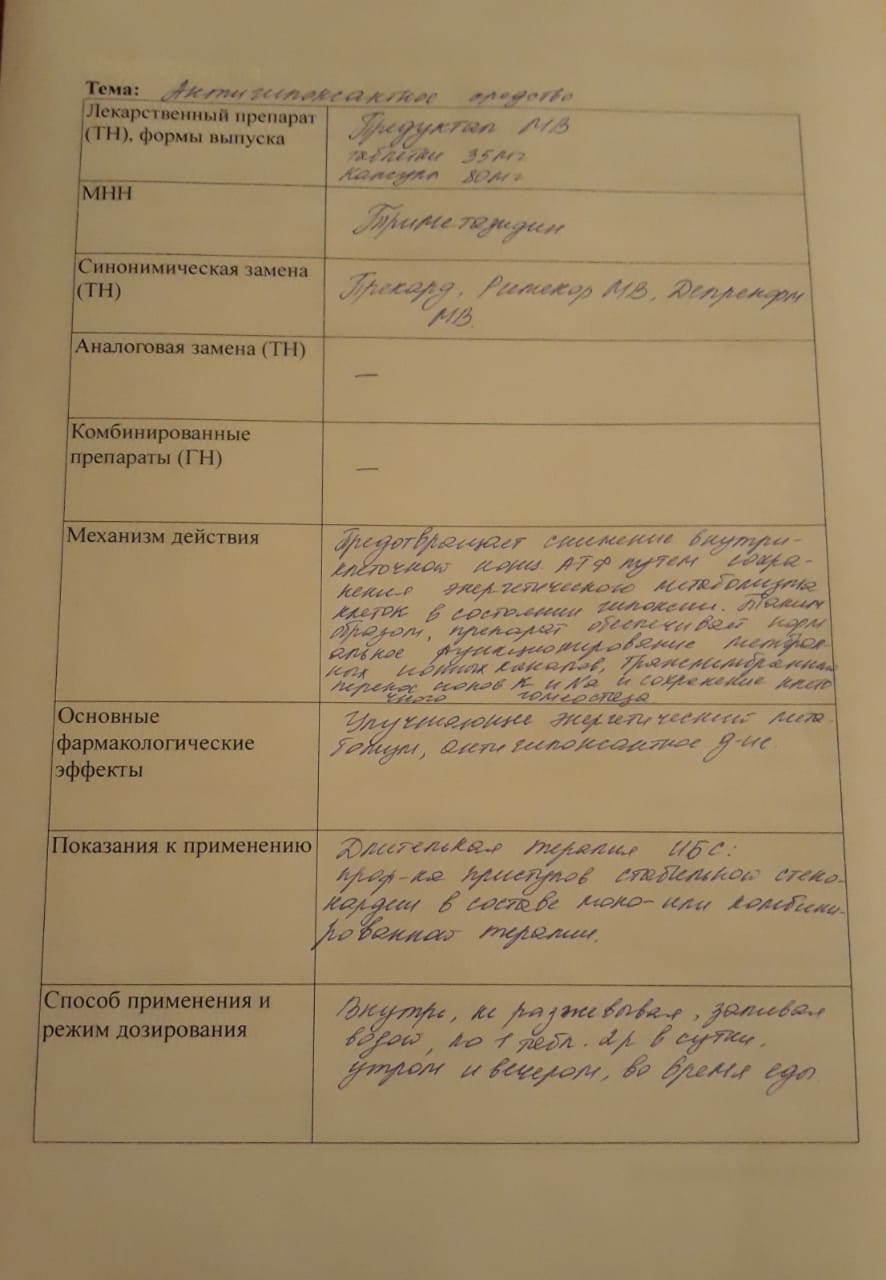 Тема: Антигипоксантное средство
Лекарственный препарат
(ТН), формы выпуска
Предуктал МВ
таблетки 35мг
капсулы 80мг
МНН
Триметазидин
Синонимическая замена
(ТН)
Прекард, Римекор МВ, Депренорм
МВ.
Аналоговая замена (ТН)
—
Комбинированные
препараты (ГН)
—
Механизм действия
Предотвращает снижение внутри-
клеточной конц. АТФ путем сохра-
нения энергетического метаболизма
клеток в состоянии гипоксии. Таким
образом, препарат обеспечивает норм
альное функционирование мембран-
ных ионных каналов, трансмембранный
перенос ионов K и Na и сохранение клето
чного гомеостаза
Основные
фармакологические
эффекты
Улучшающие энергетический мета
болизм, антигипоксантное д-ие
Показания к применению
Длительная терапия ИБС:
проф-ка приступов стабильной стено-
кардии в составе моно- или комбини-
рованной терапии.
Способ применения и
режим дозирования
Внутрь, не разжевывая, запивая
водой, по 1 табл. 2р в сутки,
утром и вечером, во время еды